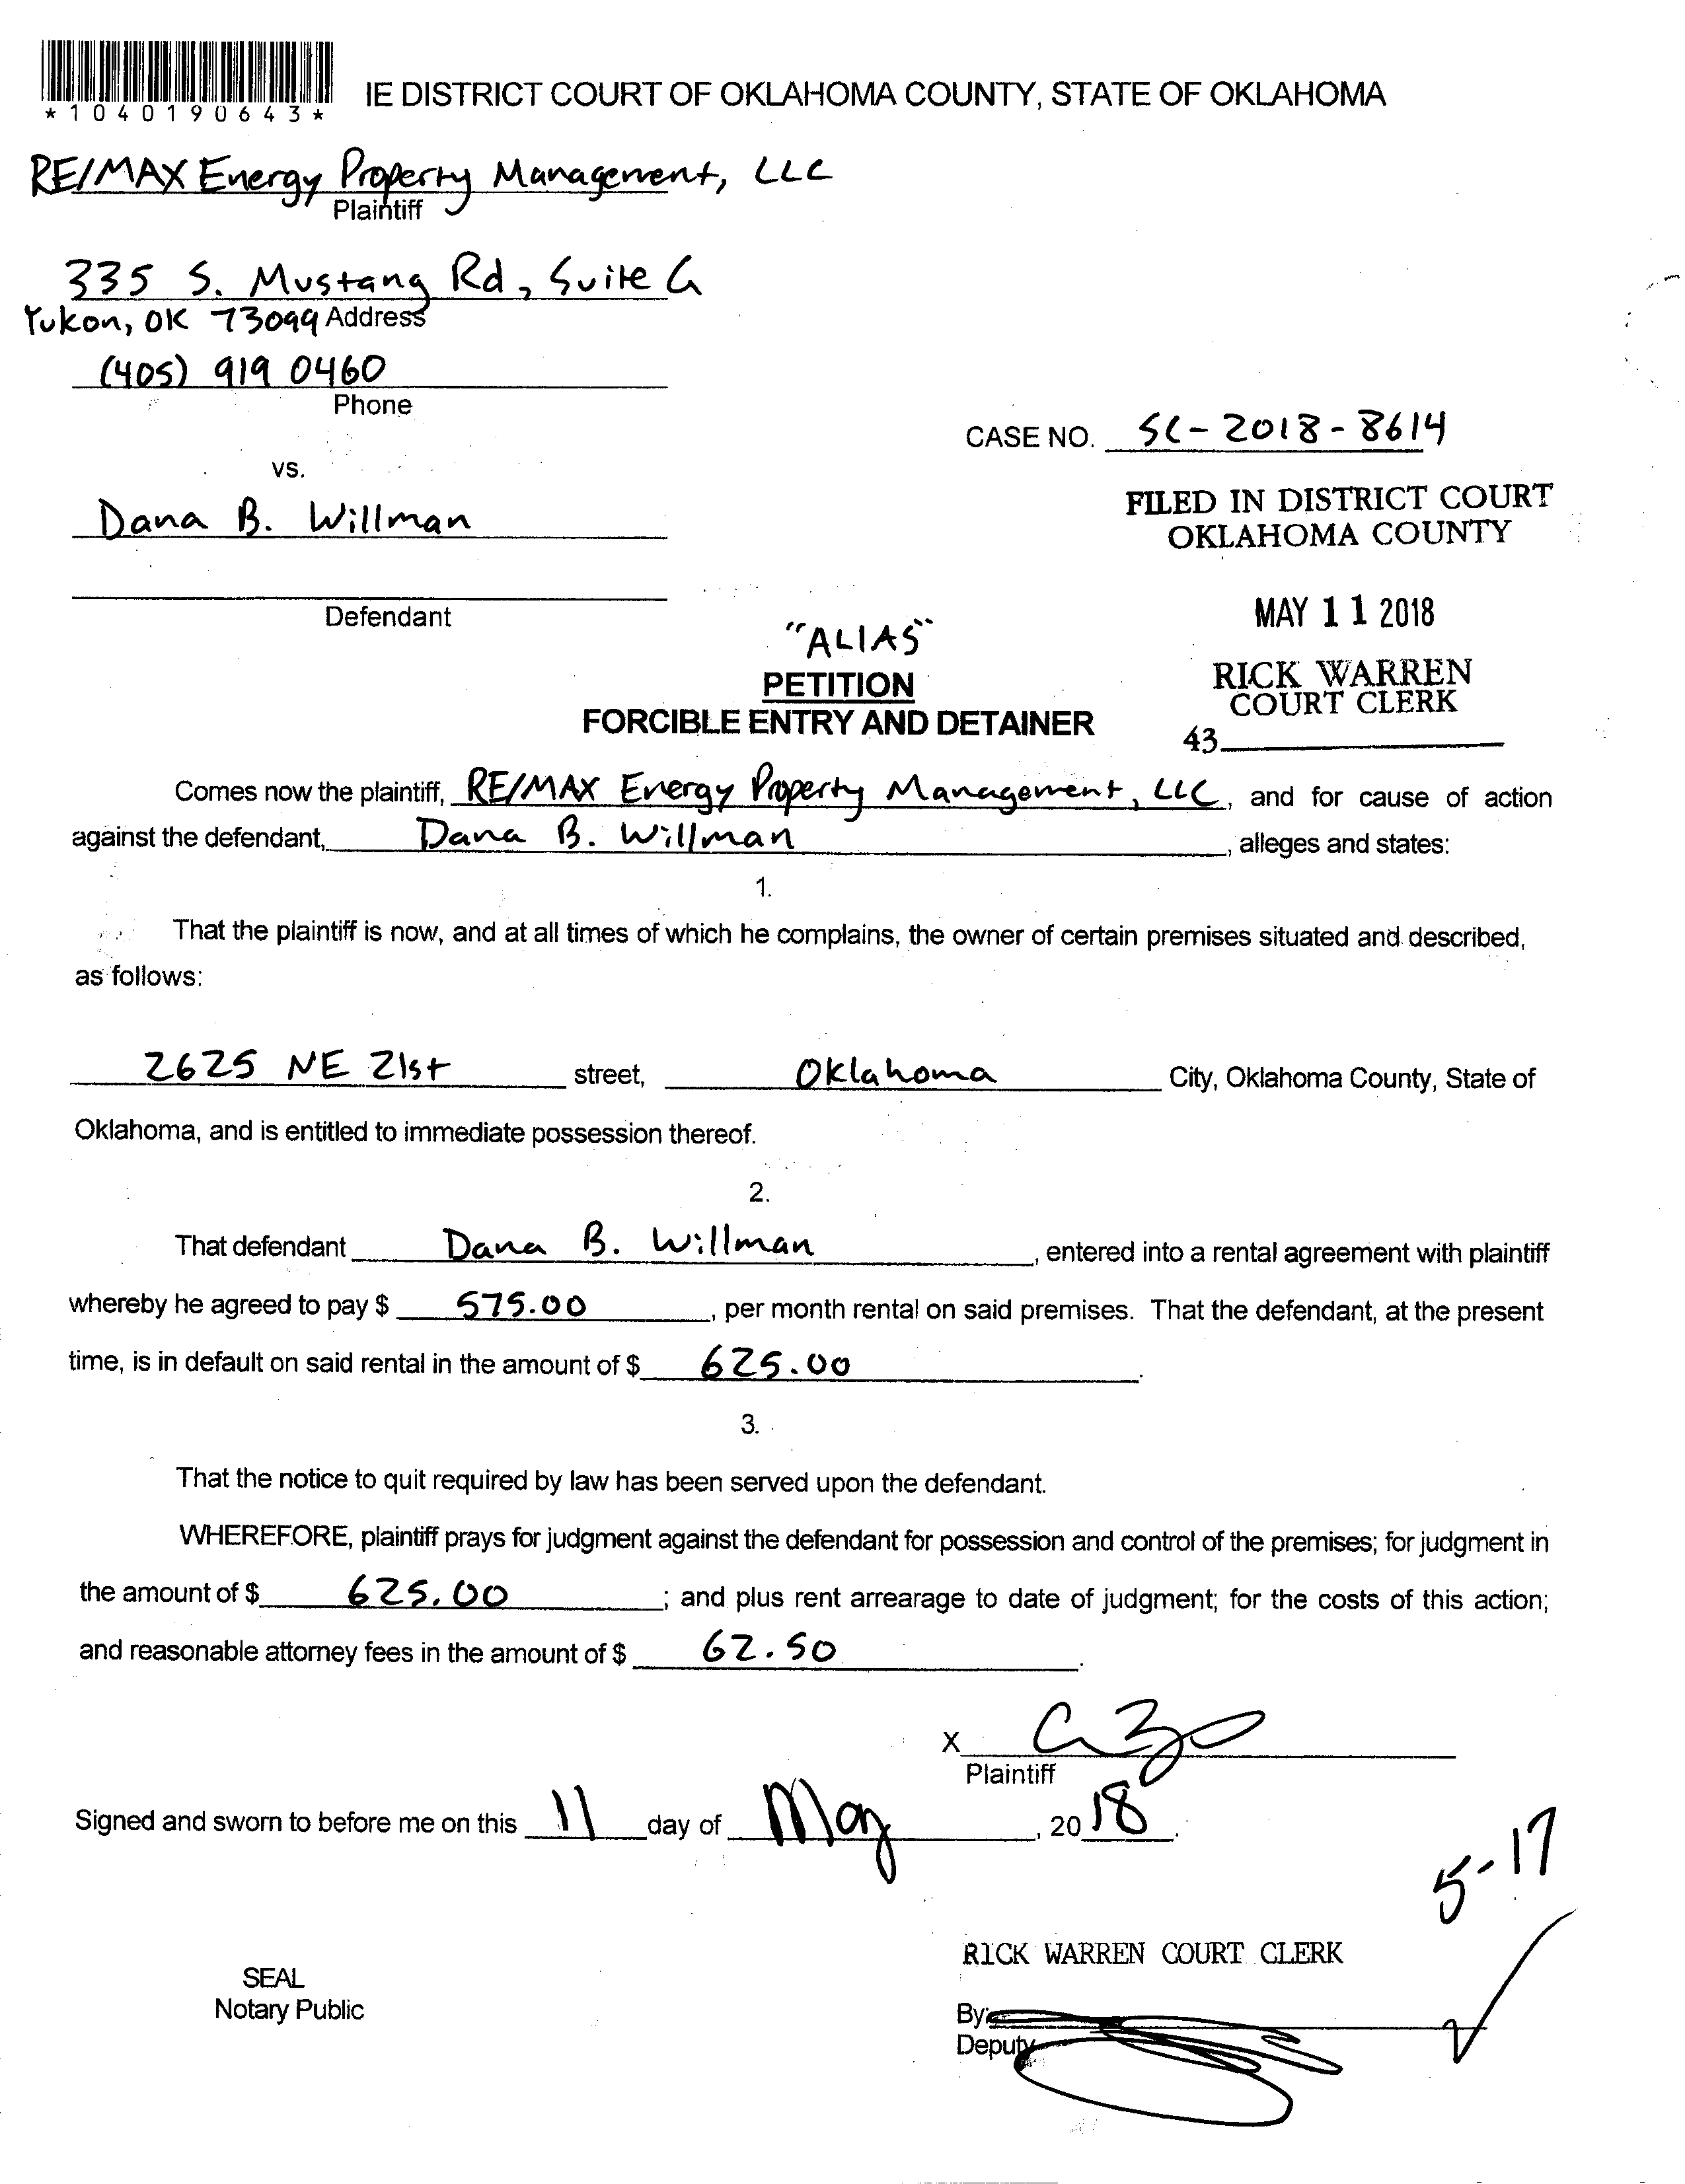 *1040190643*
IE DISTRICT COURT OF OKLAHOMA COUNTY, STATE OF OKLAHOMA
RE/MAX Energy Property Management, LLC
Plaintiff
335 S. Mustang Rd, Suite G
Yukon, OK 73099 Address
(405) 919 0460
Phone
CASE NO. SC-2018-8614
vs.
Dana B. Willman
FILED IN DISTRICT COURT
OKLAHOMA COUNTY
Defendant
MAY 11 2018
"ALIAS"
RICK WARREN
COURT CLERK
PETITION
FORCIBLE ENTRY AND DETAINER
43
Comes now the plaintiff, RE/MAX Energy Property Management, LLC, and for cause of action
against the defendant, Dana B. Willman, alleges and states:
1.
That the plaintiff is now, and at all times of which he complains, the owner of certain premises situated and described,
as follows:
2625 NE 21st street, Oklahoma City, Oklahoma County, State of
Oklahoma, and is entitled to immediate possession thereof.
2.
That defendant Dana B. Willman, entered into a rental agreement with plaintiff
whereby he agreed to pay $ 575.00, per month rental on said premises. That the defendant, at the present
time, is in default on said rental in the amount of $ 625.00.
3.
That the notice to quit required by law has been served upon the defendant.
WHEREFORE, plaintiff prays for judgment against the defendant for possession and control of the premises; for judgment in
the amount of $ 625.00; and plus rent arrearage to date of judgment; for the costs of this action;
and reasonable attorney fees in the amount of $ 62.50.
X
Plaintiff
Signed and sworn to before me on this 11 day of May, 2018.
5-17
RICK WARREN COURT CLERK
SEAL
Notary Public
By:
Deputy